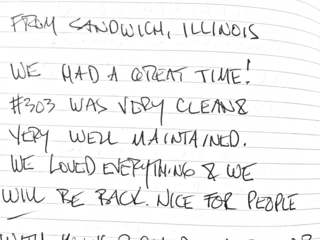 FROM SANDWICH, ILLINOIS
WE HAD A GREAT TIME!
#303 WAS VERY CLEAN &
VERY WELL MAINTAINED.
WE LOVED EVERYTHING & WE
WILL BE BACK. NICE FOR PEOPLE
WITH